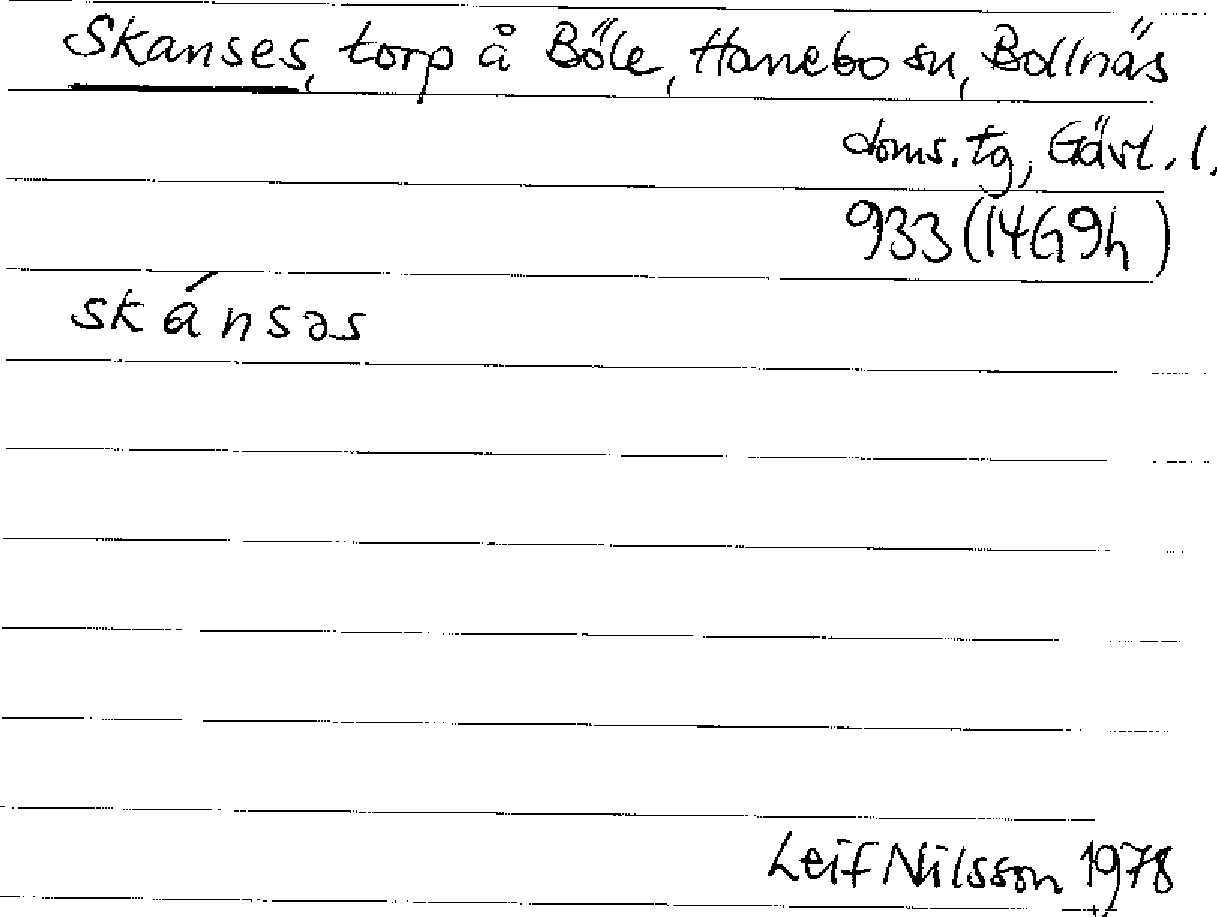 Skanses, torp å Böle, Hanebo sn, Bollnäs
doms.tg, Gävl.l.
933 (14G9h)
skánsəs
Leif Nilsson 1978